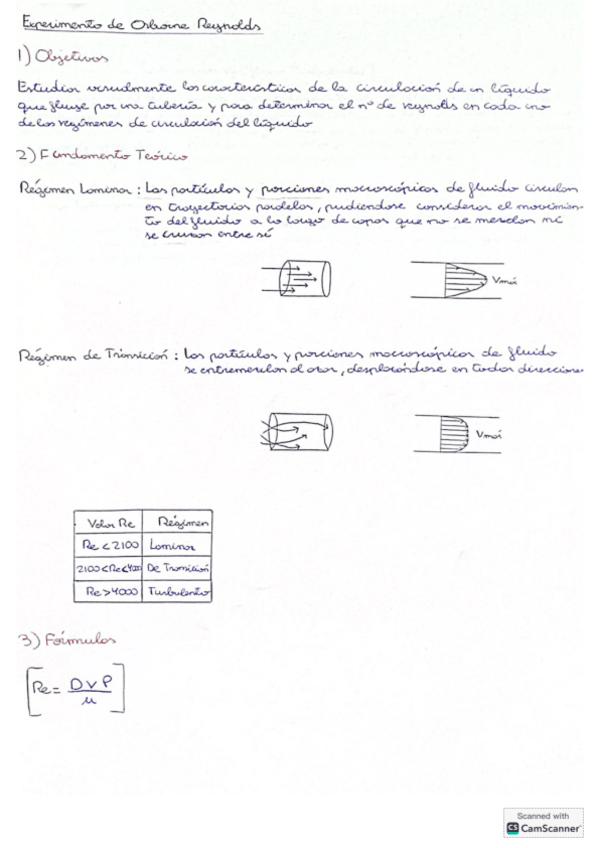 Experimento de Osborne Reynolds
1) Objetivos
Estudiar visualmente las características de la circulación de un líquido
que fluye por una tubería y para determinar el nº de reynolds en cada uno
de los regímenes de circulación del líquido
2) Fundamento Teórico
Régimen Laminar: Las partículas y porciones macroscópicas de fluido circulan
en trayectorias paralelas, pudiendose considerar el movimien-
to del fluido a lo largo de capas que no se mezclan ni
se cruzan entre sí
Vmáx
Régimen de Transición: Las partículas y porciones macroscópicas de fluido
se entremezclan al azar, desplazándose en todas direcciones
Vmáx
Valor Re Régimen
Re < 2100 Laminar
2100<Re<4000 De Transición
Re > 4000 Turbulento
3) Fórmulas
[Re = D v ρ / μ]
Scanned with
CS CamScanner